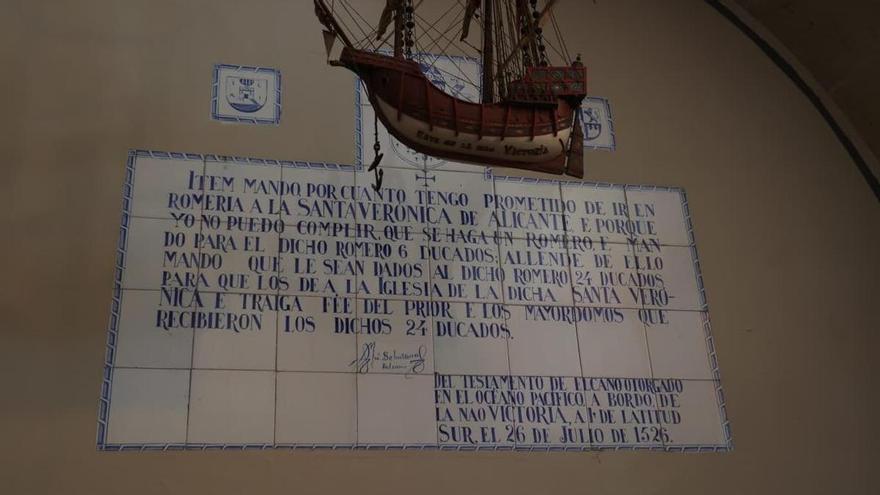 ESTA ES LA NAO VICTORIA
ITEM MANDO POR CUANTO TENGO PROMETIDO DE IR EN
ROMERIA A LA SANTA VERÓNICA DE ALICANTE E PORQUE
YO NO PUEDO COMPLIR, QUE SE HAGA UN ROMERO E MAN-
DO PARA EL DICHO ROMERO 6 DUCADOS: ALLENDE DE ELLO
MANDO QUE LE SEAN DADOS AL DICHO ROMERO 24 DUCADOS
PARA QUE LOS DE A LA IGLESIA DE LA DICHA SANTA VERÓ-
NICA E TRAIGA FÉE DEL PRIOR E LOS MAYORDOMOS QUE
RECIBIERON LOS DICHOS 24 DUCADOS.
DEL TESTAMENTO DE ELCANO OTORGADO
EN EL OCÉANO PACÍFICO, A BORDO, DE
LA NAO VICTORIA, A 1º DE LATITUD
SUR, EL 26 DE JULIO DE 1526.